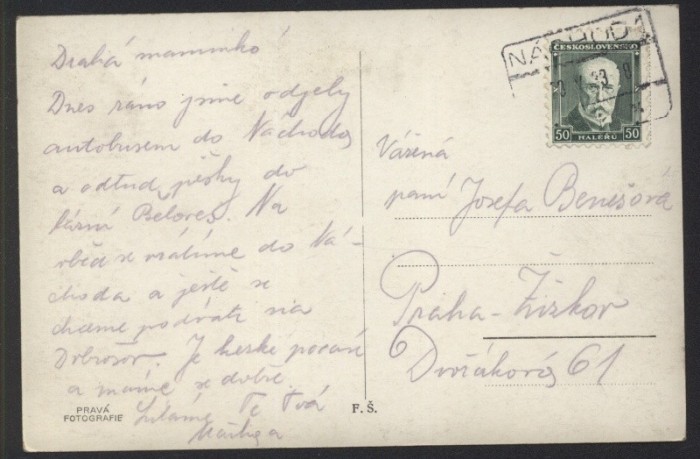 Drahá maminko!
Dnes ráno jsme odjely
autobusem do Náchoda
a odtud pěšky do
lázní Beloves. Na
oběd se vrátíme do Ná-
choda a ještě se
chceme podívati na
Dobrošov. Je hezké počasí
a máme se dobře.
Líbáme Tě Tvá
PRAVÁ
FOTOGRAFIE
F. Š.
NÁCHOD 1
ČESKOSLOVENSKO
50 50
HALÉŘŮ
Vážená
paní Josefa Benešová
Praha-Žižkov
Dvořákova 61